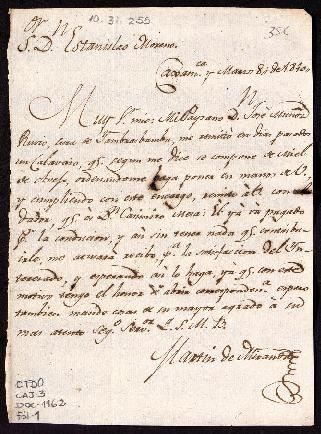 10.31.255
356
S. D. Estanislao Moreno.
y Marzo 8, de 1810
Muy Sr. mio: Mi Paysano D. José Muñoz
Rucio, Cura de me remitió en dias pasados
un Calabacito, qe. segun me dice se compone de Miel
de Avefa, ordenandome haga poner en manos de V.
y cumpliendo con este encargo, remito à V. con el
dador, qe. es Dn. Casimiro Mesa: El ya va pagado
pr. la conduccion, y asi sin tener nada qe. contribu-
irle, me avisará recibo pa. la satisfaccion del In-
teresado, y esperando asi lo haga, ya qe. con este
motivo tengo el honor de abrir correspondencia espero
tambien mande cosas de su mayor agrado à su
mas atento Segº. Servor. Q. S. M. B.
Martin de Miranda
CTDO
CAJ-3
DOC-1162
Fol-1